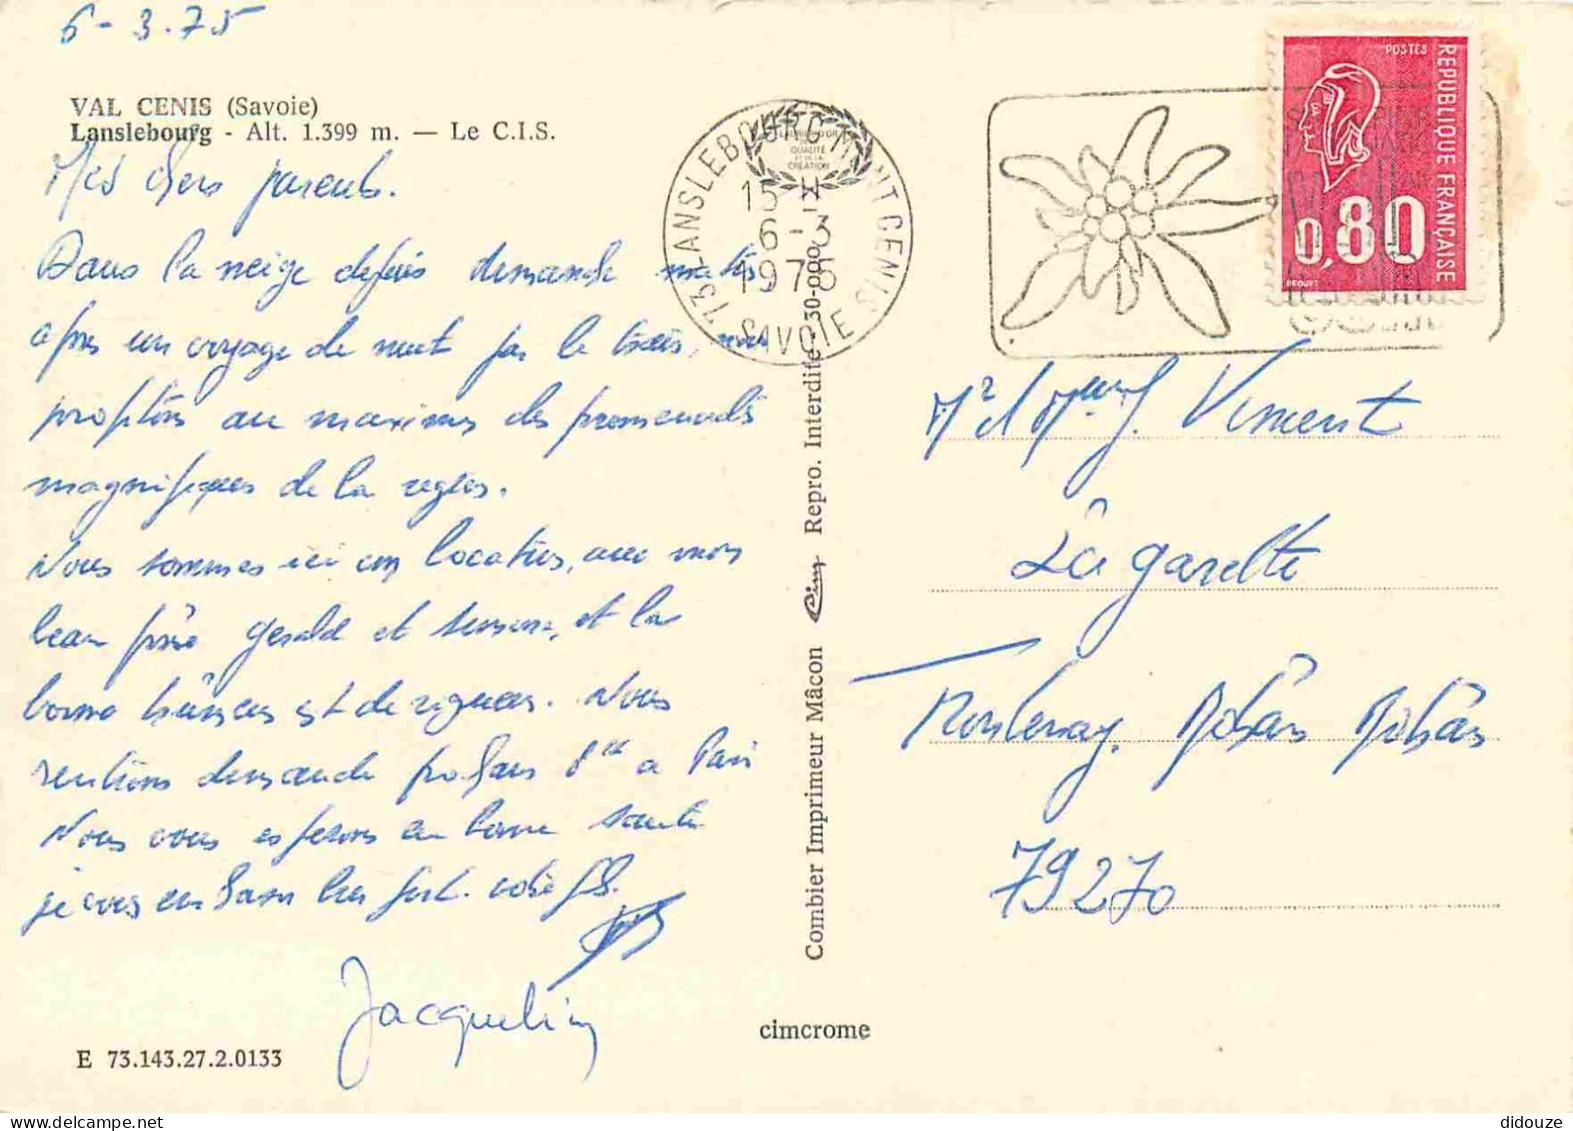 6-3.75
VAL CENIS (Savoie)
Lanslebourg - Alt. 1.399 m. — Le C.I.S.
Mes chers parents.
Dans la neige depuis dimanche matin
après un voyage de nuit par le train, nous
profitons au maximum des promenades
magnifiques de la région.
Nous sommes ici en location, avec mon
beau frère Gerald et et la
bonne humeur est de rigueur. Nous
rentrons dimanche prochain à Paris
Nous vous espérons en bonne santé
je vous embrasse bien fort. votre fils.
Jacqueline
E 73.143.27.2.0133
cimcrome
Combier Imprimeur Mâcon Cim Repro. Interdite 30-000
LABEL D'OR
QUALITÉ
ET DE LA
CRÉATION
73 LANSLEBOURG-MONT CENIS
15 H
6-3
1975
SAVOIE
POSTES
REPUBLIQUE FRANÇAISE
0,80
BEQUET
Mr et Mme J. Vincent
La garette
79270
didouze